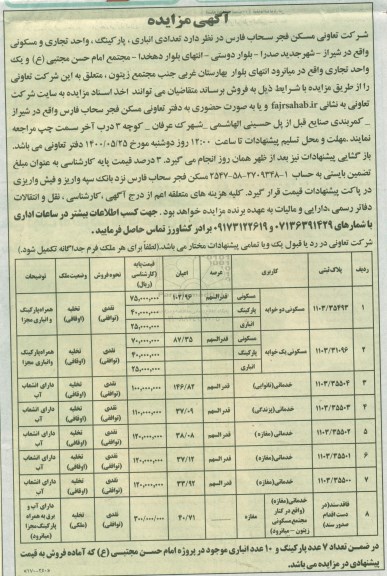 آگهی مزایده
شرکت تعاونی مسکن فجر سحاب فارس در نظر دارد تعدادی انباری ، پارکینگ ، واحد تجاری و مسکونی
واقع در شیراز - شهر جدید صدرا - بلوار دوستی - انتهای بلوار دهخدا - مجتمع امام حسن مجتبی (ع) و یک
واحد تجاری واقع در میانرود انتهای بلوار بهارستان غربی جنب مجتمع زیتون ، متعلق به این شرکت تعاونی
را از طریق مزایده با شرایط ذیل به فروش برساند متقاضیان می توانند اخذ اسناد مزایده به سایت شرکت
تعاونی به نشانی fajrsahab.ir و یا به صورت حضوری به دفتر تعاونی مسکن فجر سحاب فارس واقع در شیراز
_ کمربندی صنایع قبل از پل حسینی الهاشمی _ شهرک عرفان _ کوچه ۳ درب آخر سمت چپ مراجعه
نمایند .مهلت و محل تسلیم پیشنهادات تا ساعت ۱۲:۰۰ روز دوشنبه مورخ ۱۴۰۰/۰۵/۲۵ دفتر تعاونی می باشد.
باز گشایی پیشنهادات نیز بعد از ظهر همان روز انجام می گیرد. ۳ درصد قیمت پایه کارشناسی به عنوان مبلغ
تضمین بایستی به حساب مسکن فجر سحاب فارس نزد بانک سپه واریز و فیش واریزی
در پاکت پیشنهادات قیمت قرار گیرد. کلیه هزینه های متعلقه اعم از درج آگهی ،کارشناسی ، نقل و انتقالات
دفاتر رسمی ،دارایی و مالیات به عهده برنده مزایده خواهد بود . جهت کسب اطلاعات بیشتر در ساعات اداری
با شمارهای ۰۷۱۳۶۳۹۱۴۲۹ و ۰۹۱۷۳۱۲۲۶۱۹ برادر کشاورز تماس حاصل فرمایید.
شرکت تعاونی در رد یا قبول یک و یا تمامی پیشنهادات مختار می باشد.(لطفا برای هر ملک فرم جداگانه تکمیل شود.)
ردیف پلاک ثبتی کاربری عرصه اعیان قیمت پایه (کارشناسی) (ریال) نحوه فروش وضعیت ملک توضیحات
۱ ۱۱۰۳/۳۵۴۹۳ مسکونی دو خوابه مسکونی پارکینگ انباری قدرالسهم ۱۰۲/۹۶ نقدی (توافقی) تخلیه (اوقافی) همراه پارکینگ و انباری مجزا
۲ ۱۱۰۳/۳۱۰۹۶ مسکونی یک خوابه مسکونی پارکینگ انباری قدرالسهم ۸۷/۳۵ نقدی (توافقی) تخلیه (اوقافی) همراه پارکینگ و انباری مجزا
۳ ۱۱۰۳/۳۵۵۰۴ خدماتی(نانوایی) قدرالسهم ۱۴۶/۸۲ ۱۰۰,۰۰۰,۰۰۰ نقدی (توافقی) تخلیه (اوقافی) دارای انشعاب آب
۴ ۱۱۰۳/۳۵۵۰۳ خدماتی(پرندگی) قدرالسهم ۳۷/۰۹ ۱۱۰,۰۰۰,۰۰۰ نقدی (توافقی) تخلیه (اوقافی) دارای انشعاب آب
۵ ۱۱۰۳/۳۵۵۰۲ خدماتی(مغازه) قدرالسهم ۳۸/۰۸ ۱۲۰,۰۰۰,۰۰۰ نقدی (توافقی) تخلیه (اوقافی) دارای انشعاب آب
۶ ۱۱۰۳/۳۵۵۰۱ خدماتی(مغازه) قدرالسهم ۳۷/۱۲ ۱۲۰,۰۰۰,۰۰۰ نقدی (توافقی) تخلیه (اوقافی) دارای انشعاب آب
۷ ۱۱۰۳/۳۵۵۰۰ خدماتی(مغازه) قدرالسهم ۳۳/۹۲ ۱۲۰,۰۰۰,۰۰۰ نقدی (توافقی) تخلیه (اوقافی) دارای انشعاب آب
۸ فاقد سند(در دست اقدام صدور سند) خدماتی(مغازه) (واقع در کنار مجتمع مسکونی زیتون - میانرود) مغازه ۴۰/۷۱ ۳۰۰/۰۰۰/۰۰۰ نقدی (توافقی) تخلیه (ملکی) دارای آب و برق به همراه پارکینگ مجزا (میانرود)
در ضمن تعداد ۷ عدد پارکینگ و ۱۰ عدد انباری موجود در پروژه امام حسن مجتبی (ع) که آماده فروش به قیمت
پیشنهادی در مزایده می باشد.